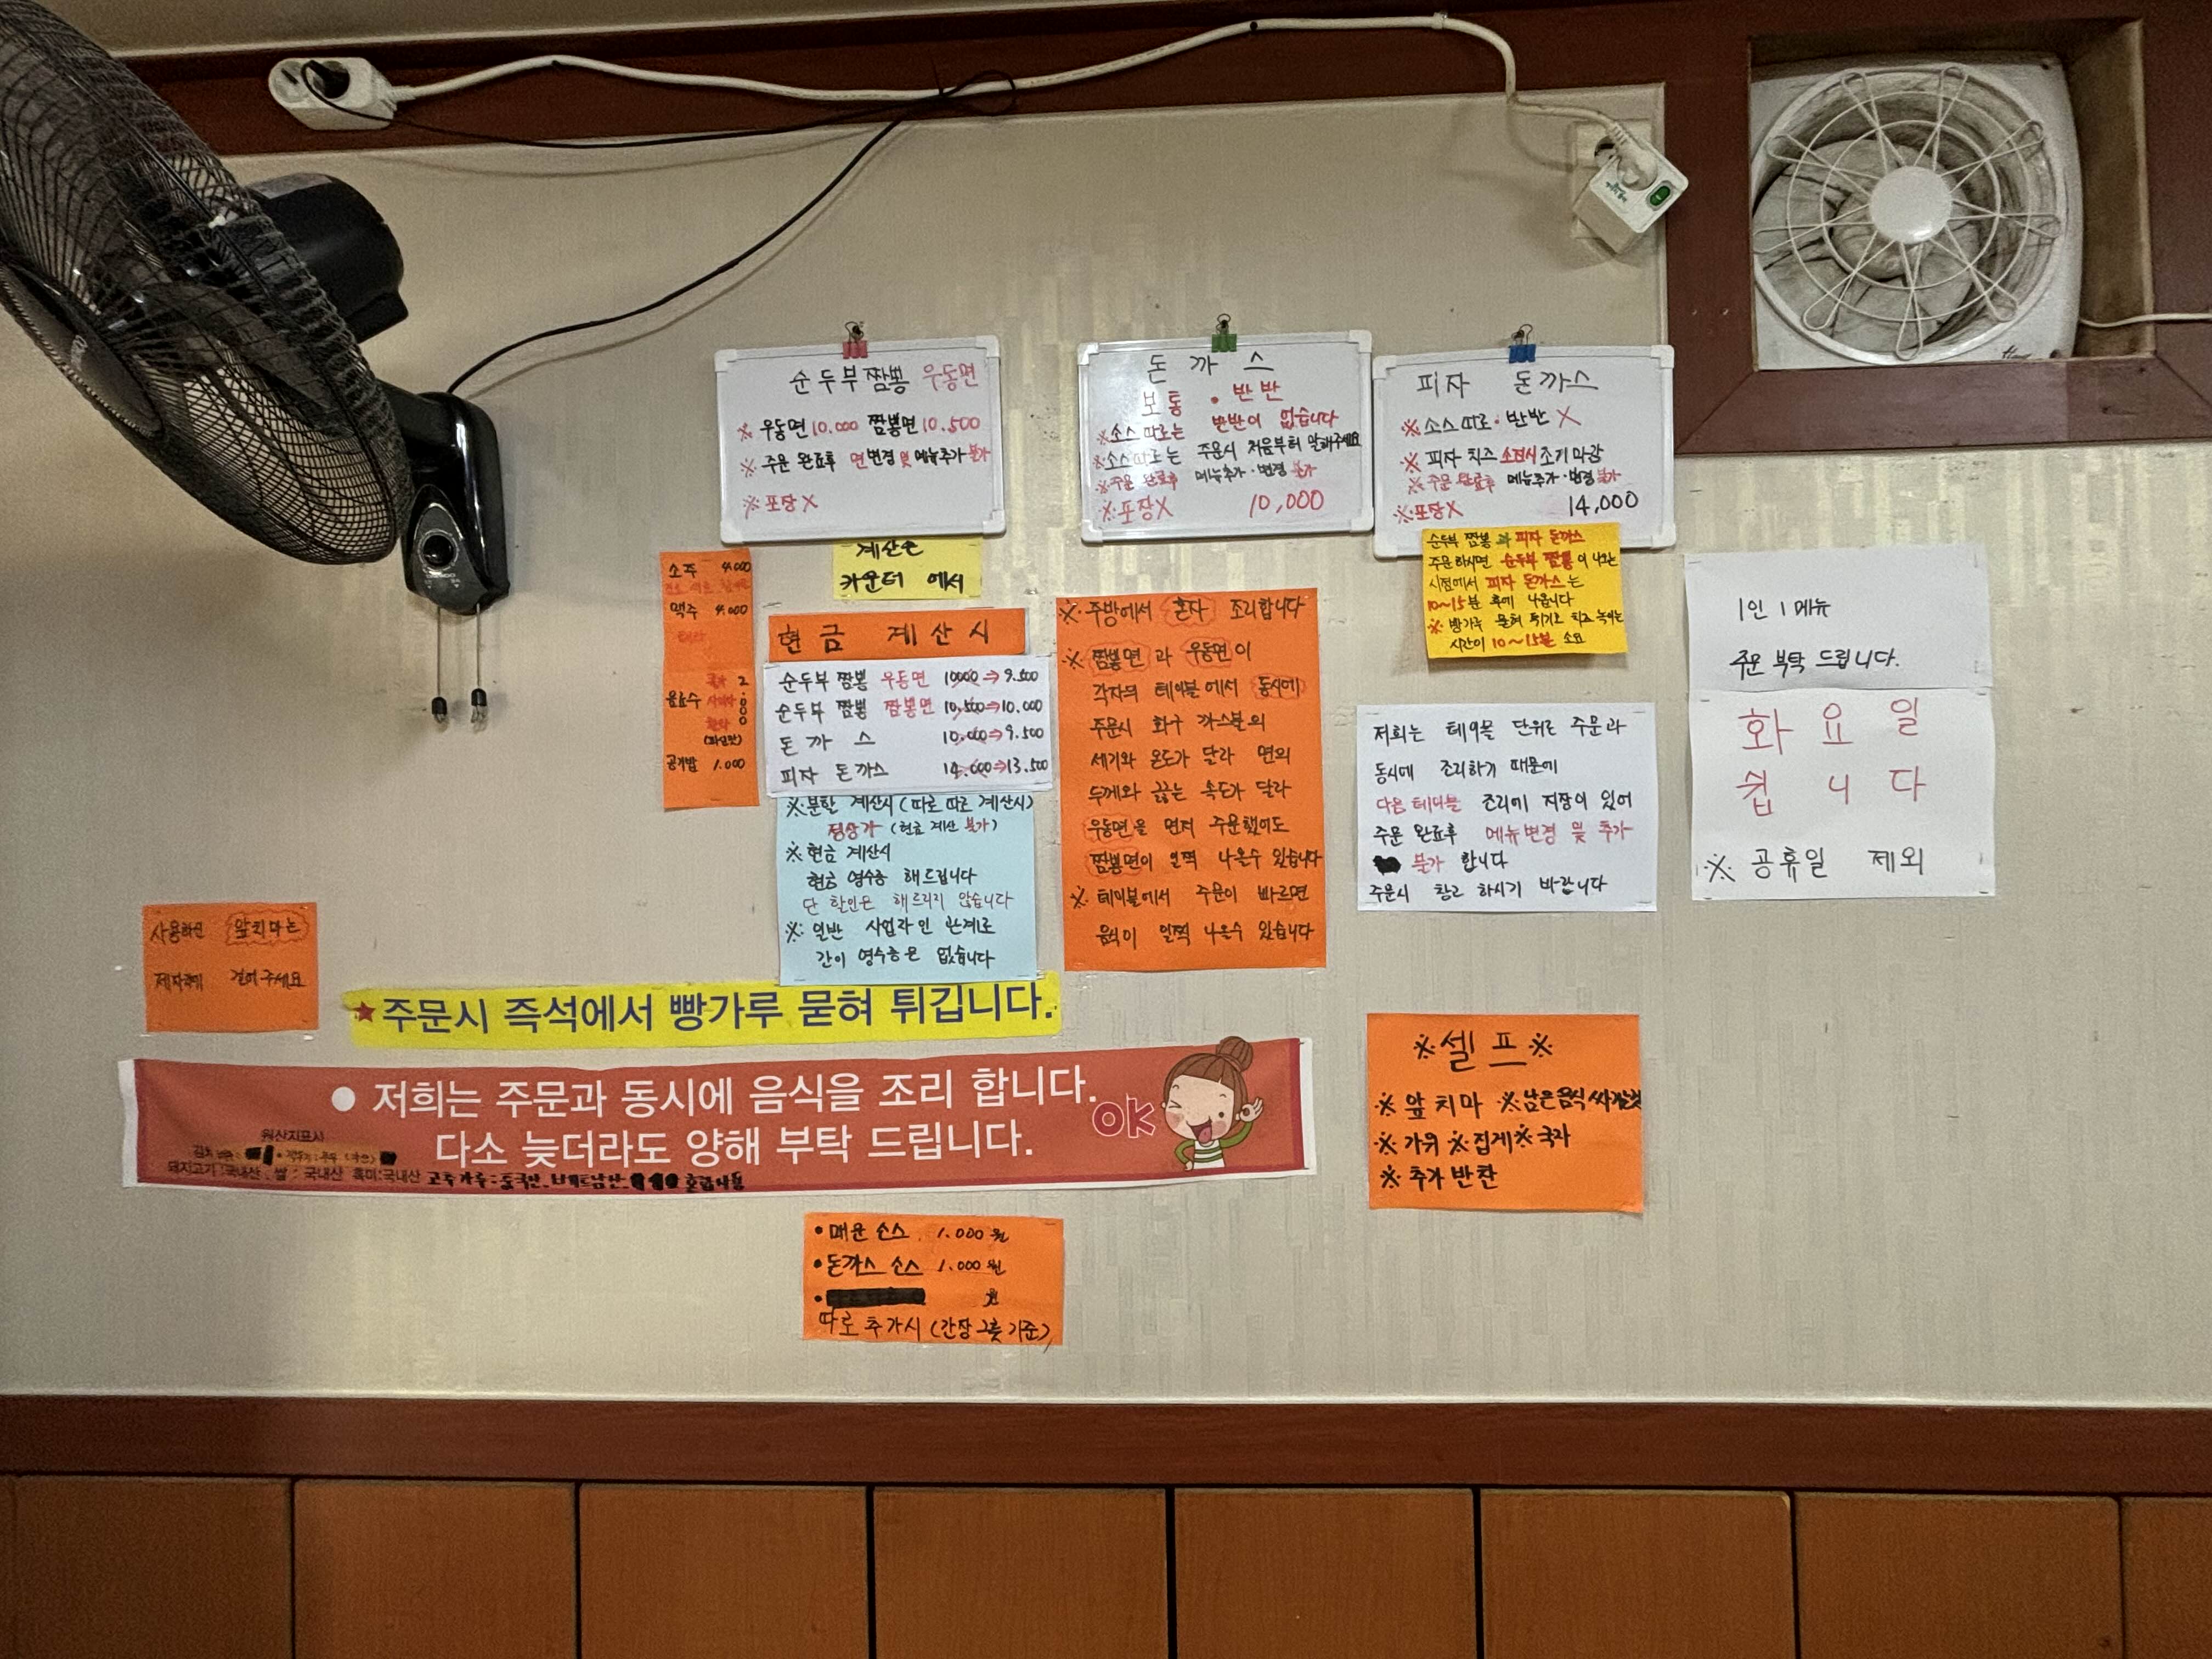 순두부짬뽕 우동면
※ 우동면 10.000 짬뽕면 10.500
※ 주문 완료후 면변경 및 메뉴추가 불가
※ 포장X
돈 까 스
보통 · 반반
※소스따로는 반반이 없습니다
※소스따로는 주문시 처음부터 말해주세요
※주문 완료후 메뉴추가·변경 불가
※포장X 10,000
피자 돈까스
※소스따로·반반 X
※ 피자 치즈 소진시 조기 마감
※ 주문 완료후 메뉴추가·변경 불가
※포장X 14,000
순두부 짬뽕 과 피자 돈까스
주문하시면 순두부 짬뽕이 나오는
시점에서 피자 돈까스는
10~15분 후에 나옵니다
※ 빵가루 묻혀 튀기고 치즈 녹이는
시간이 10~15분 소요
소주 4.000
맥주 4.000
테라
음료수
공기밥 1.000
계산은
카운터 에서
현 금 계 산 시
순두부 짬뽕 우동면 10000⇒9.500
순두부 짬뽕 짬뽕면 10,500⇒10.000
돈 까 스 10.000⇒9.500
피자 돈까스 14.000⇒13.500
※분할 계산시 (따로 따로 계산시)
정상가 (현금 계산 불가)
※현금 계산시
현금 영수증 해드립니다
단 할인은 해드리지 않습니다
※ 일반 사업자인 관계로
간이 영수증은 없습니다
※ 주방에서 혼자 조리합니다
※ 짬뽕면 과 우동면이
각자의 테이블에서 동시에
주문시 화구 까스불의
세기와 온도가 달라 면의
두께와 끓는 속도가 달라
우동면을 먼저 주문했어도
짬뽕면이 일찍 나올수 있습니다
※ 테이블에서 주문이 빠르면
음식이 일찍 나올수 있습니다
저희는 테이블 단위로 주문과
동시에 조리하기 때문에
다음 테이블 조리에 지장이 있어
주문 완료후 메뉴변경 및 추가
불가 합니다
주문시 참고 하시기 바랍니다
1인 1메뉴
주문 부탁 드립니다.
화 요 일
쉽 니 다
※ 공휴일 제외
사용하신 앞치마는
제자리에 걸어주세요
★주문시 즉석에서 빵가루 묻혀 튀깁니다.
● 저희는 주문과 동시에 음식을 조리 합니다.
다소 늦더라도 양해 부탁 드립니다.
OK
원산지표시
돼지고기:국내산 . 쌀 : 국내산 흑미:국내산 고추가루:중국산_베트남산 혼합사용
※셀 프※
※ 앞치마 ※남은음식 싸갈것
※ 가위 ※집게※국자
※ 추가 반찬
• 매운 소스 1.000원
• 돈까스 소스 1.000원
• 원
따로 추가시 (간장 그릇 기준)